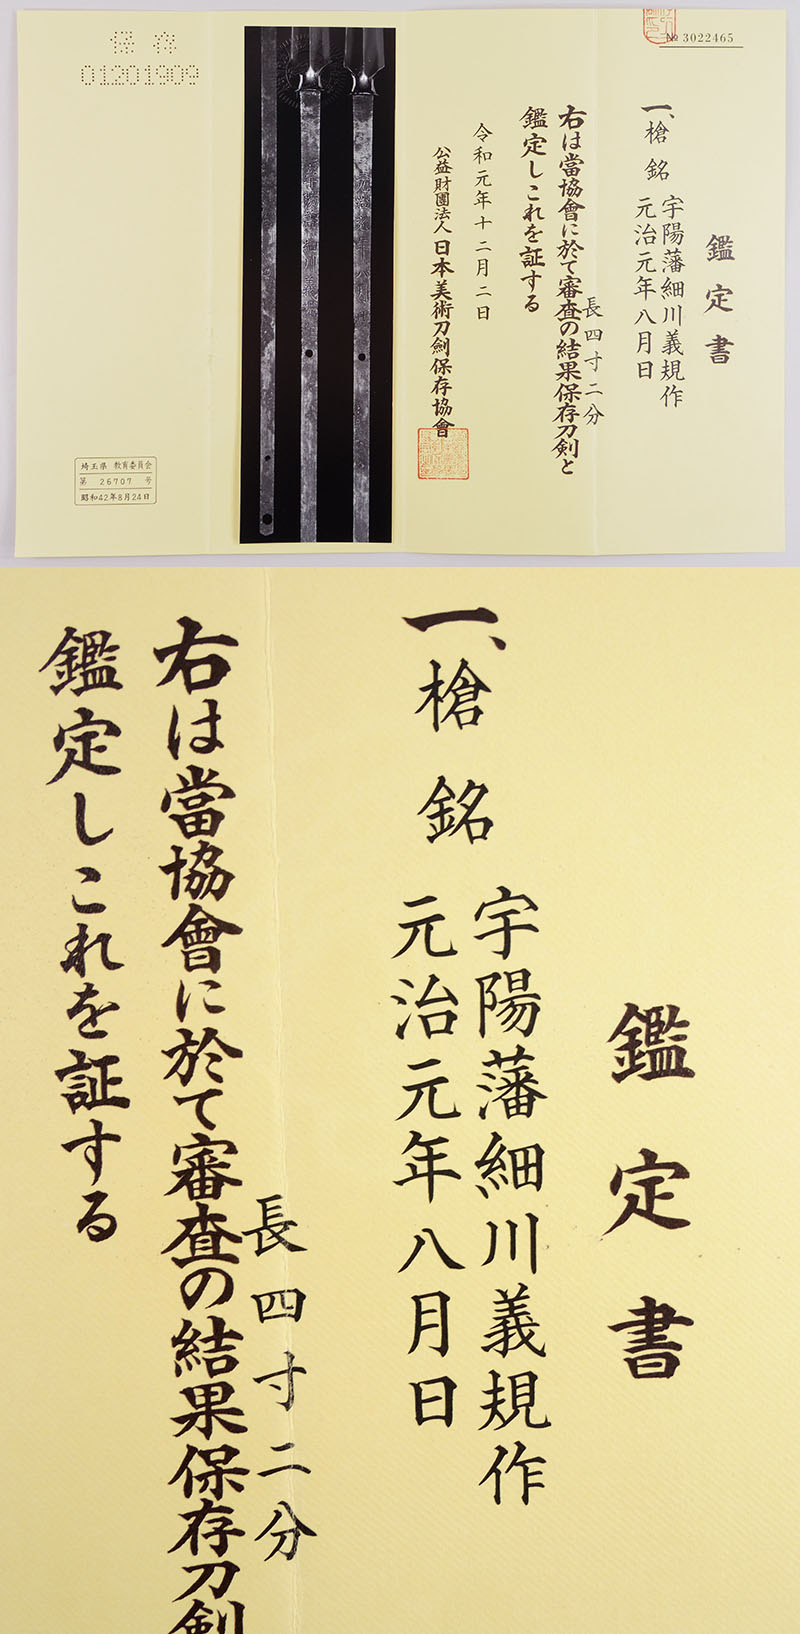 № 3022465
鑑定書
一、槍 銘 宇陽藩細川義規作
元治元年八月日
長四寸二分
右は當協會に於て審査の結果保存刀剣と
鑑定しこれを証する
令和元年十二月二日
公益財團法人 日本美術刀劍保存協會
保存
01201909
埼玉県 教育委員会
第 26707 号
昭和42年8月24日
鑑定書
一、槍 銘 宇陽藩細川義規作
元治元年八月日
長四寸二分
右は當協會に於て審査の結果保存刀剣
鑑定しこれを証する